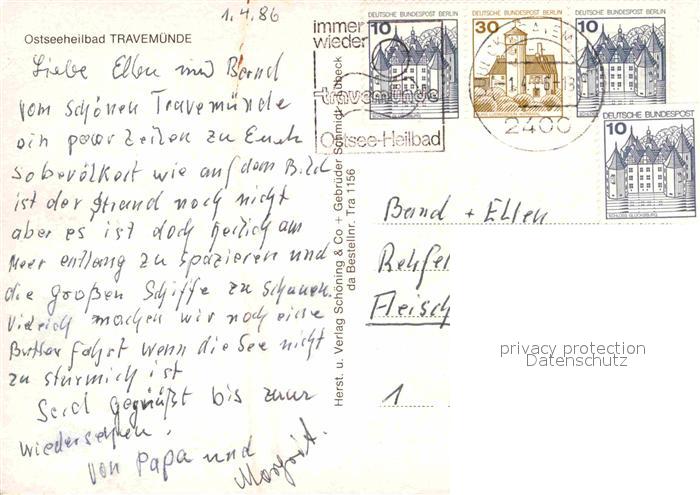 1.4.86
Ostseeheilbad TRAVEMÜNDE
Liebe Ellen und Bernd
vom schönen Travemünde
ein paar Zeilen zu Euch
so bevölkert wie auf dem Bild
ist der Strand noch nicht
aber es ist doch herlich am
Meer entlang zu spazieren und
die großen Schiffe zu schauen.
Vieleich machen wir noch eine
Butterfahrt wenn die See nicht
zu stürmich ist
Seid gegrüßt bis zum
wiedersehen.
von Papa und
Margrit.
Herst. u. Verlag Schöning & Co + Gebrüder Schmidt, Lübeck
da Bestellnr. Tra 1156
immer
wieder
travemünde
Ostsee-Heilbad
DEUTSCHE BUNDESPOST BERLIN
10
DEUTSCHE BUNDESPOST BERLIN
30
DEUTSCHE BUNDESPOST BERLIN
10
2400
DEUTSCHE BUNDESPOST
10
SCHLOSS GLÜCKSBURG
Bernd + Ellen
Rehfe
Fleisch
1
privacy protection
Datenschutz